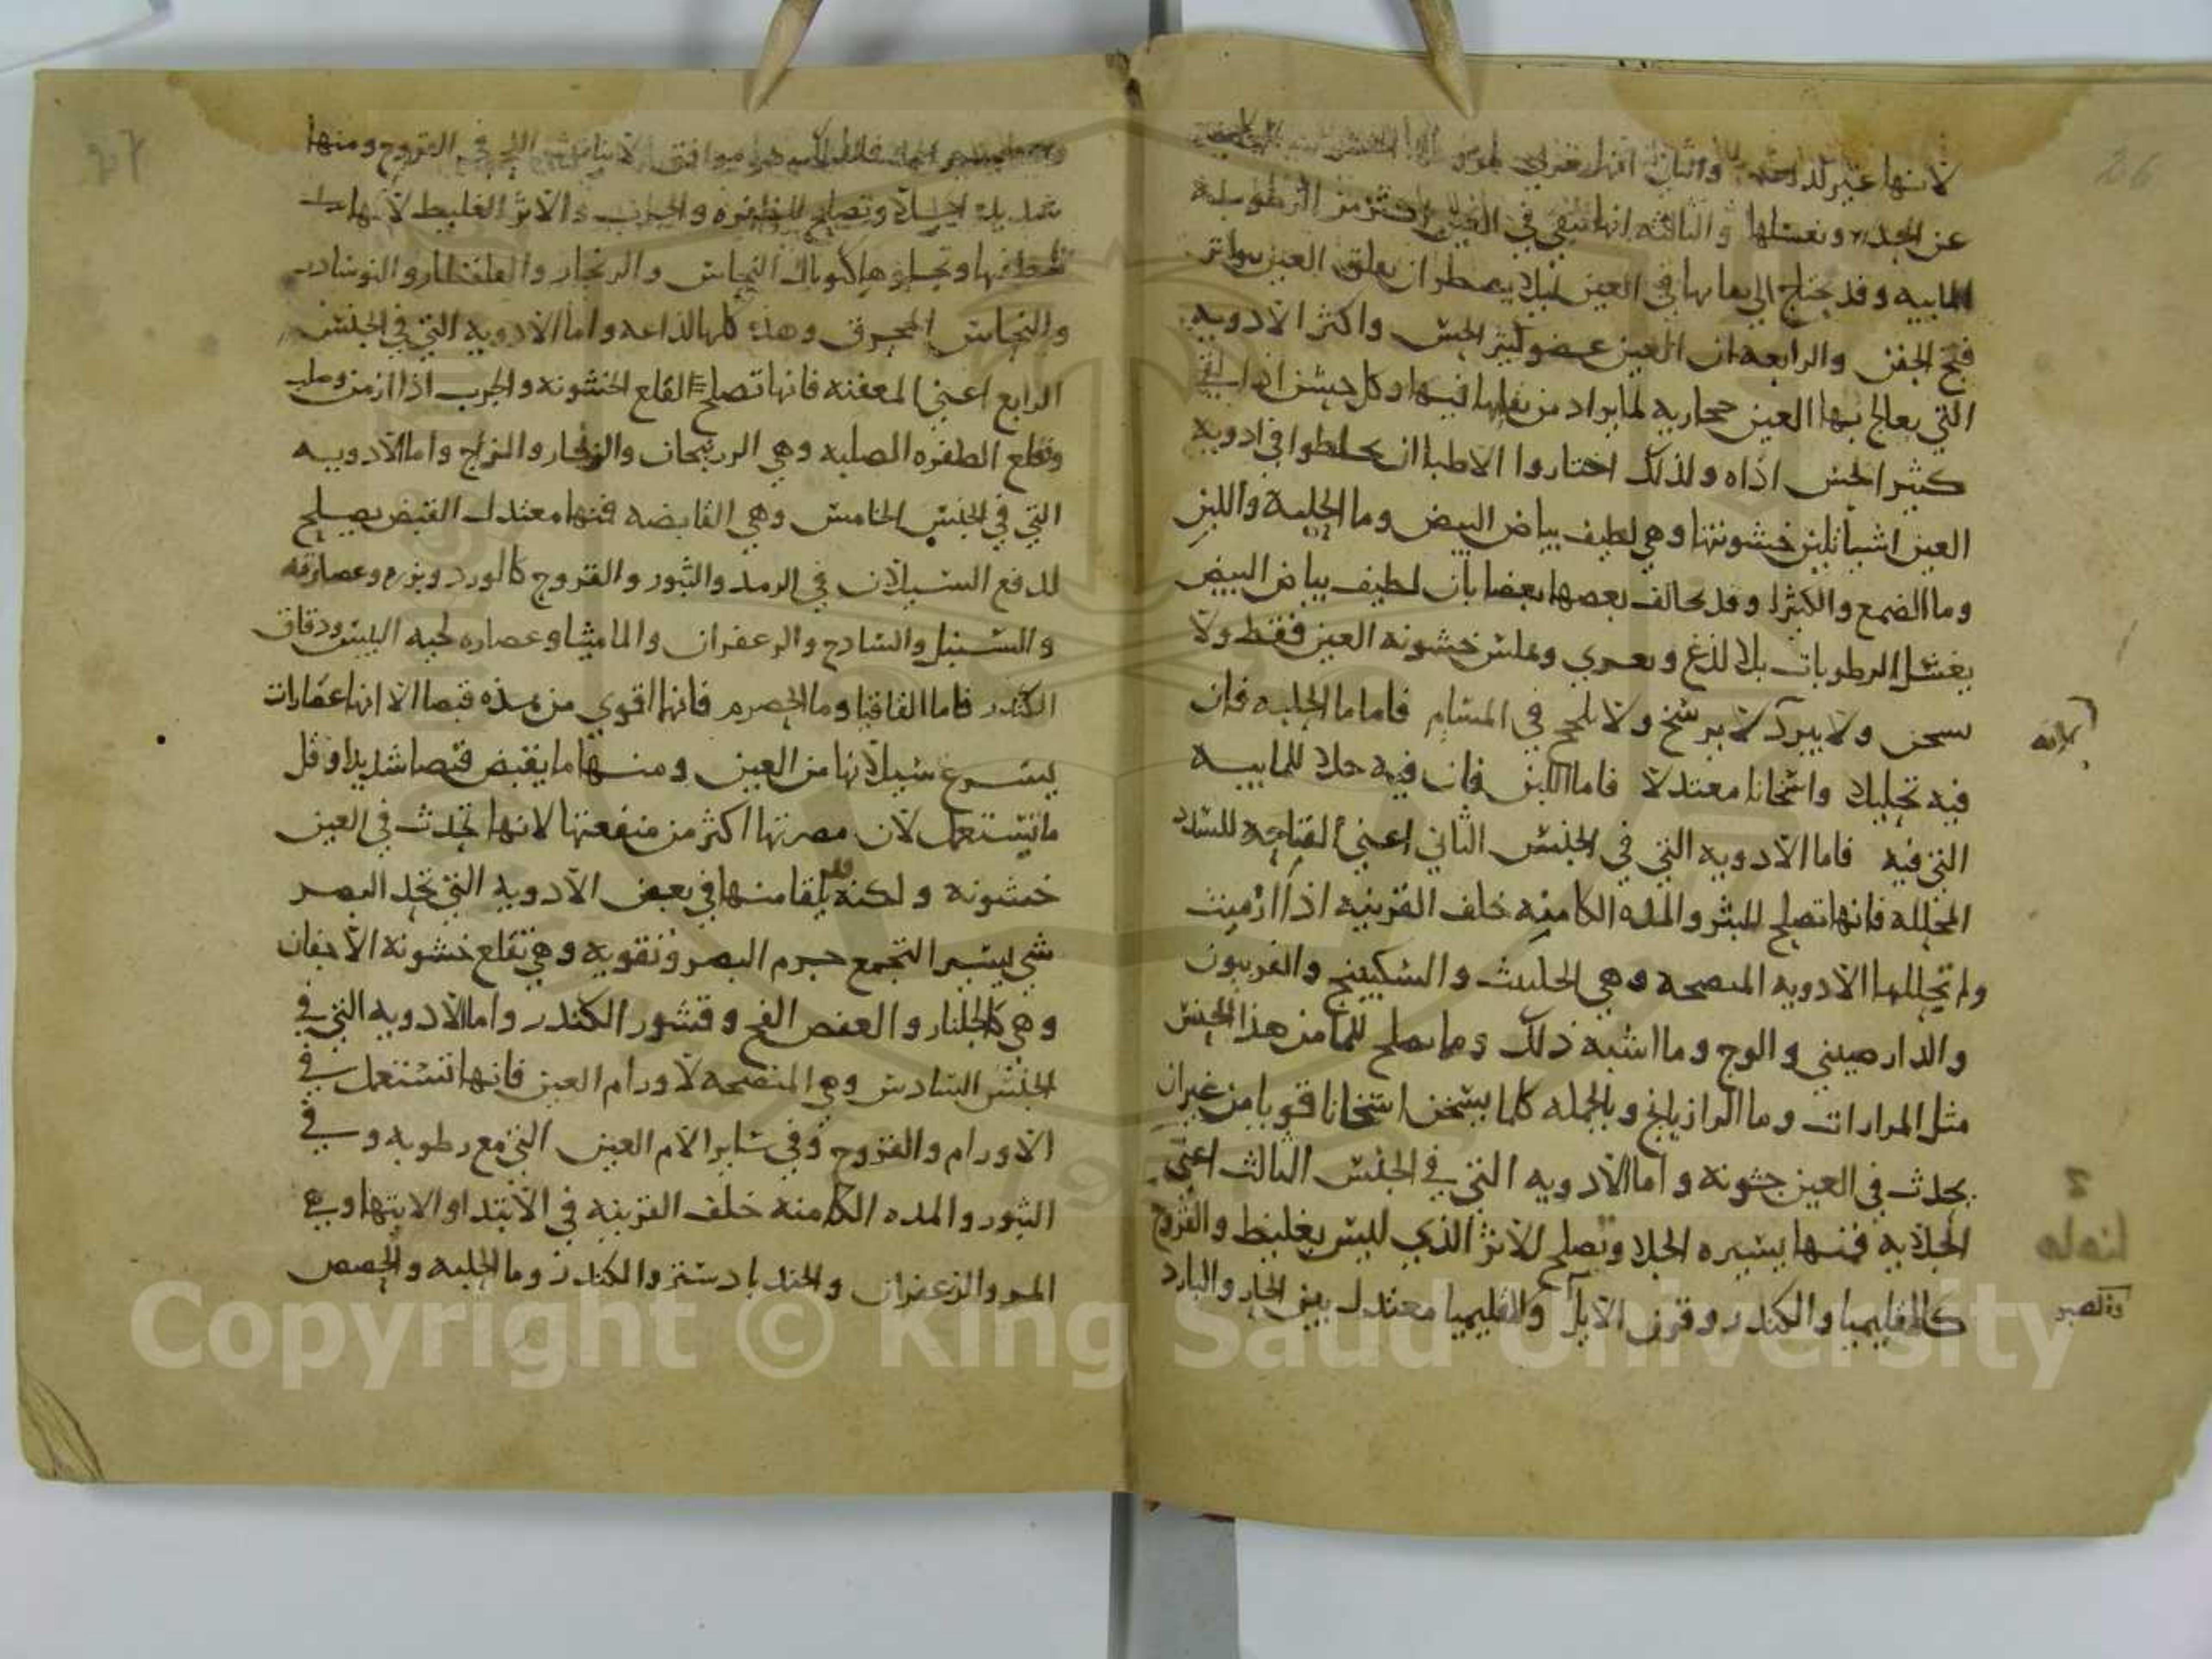 26
لانها غير لداعه والثاني انها تغري
عن الحده وتغسلها والثالثه انها تبقي في العين اكثر من الرطوبه
المايبه وقد يحتاج الى بقايها في العين ليلا يضطر ان يعلق العين بتواتر
فتح الجفن والرابعه ان العين عضو كثير الحس واكثر الادويه
التي يعالج بها العين حجاريه لما يراد من بقايها فيها وكل خشن اذا لقي
كثير الحس اذاه ولذلك اختاروا الاطبا ان يخلطوا في ادويه
العين اشيا تلين خشونتها وهي لطيف بياض البيض وما الحلبه واللبن
وما الصمغ والكثيرا وقد يخالف بعضها بعضا بان لطيف بياض البيض
يغسل الرطوبات بلا لذع ويغري ويملس خشونه العين فقط ولا
يسخن ولا يبرد لا يرسخ ولا يلحج في المسام فاما ما الحلبه فان
فيه تحليلا واسخانا معتدلا فاما اللبن فان فيه جلا للمابيه
التي فيه فاما الادويه التي في الجنس الثاني اعني الفتاحه للسدد
المحلله فانها تصلح للبثر والمده الكامنه خلف القرنيه اذا ازمنت
ولم تحللها الادويه المنضجه وهي الحلتيت والسكبينج والفربيون
والدارصيني والوج وما اشبه ذلك وما يصلح للما من هذا الجنس
مثل المرارات وما الرازيانج وبالجمله كلما يسخن اسخانا قويا من غير ان
يحدث في العين خشونه واما الادويه التي في الجنس الثالث اعني
الجلايه فمنها يسيره الجلا وتصلح للاثر الذي ليس بغليظ والقروح
كالقليميا والكندر وقرن الايل والقليميا معتدل بين الحار والبارد
والصبر
موافق لانبات اللحم في القروح ومنها
شديده الجلا وتصلح للظفره والجرب والاثر الغليظ لانها
تلطفها وتجلوها كتوبال النحاس والزنجار والقلقطار والنوشادر
والنحاس المحرق وهذه كلها لذاعه واما الادويه التي في الجنس
الرابع اعني المعفنه فانها تصلح لقلع الخشونه والجرب اذا ازمن وصلب
وتقلع الظفره الصلبه وهي الزرنيخان والزنجار والزاج واما الادويه
التي في الجنس الخامس وهي القابضه فمنها معتدل القبض يصلح
لدفع السيلان في الرمد والبثور والقروح كالورد وبزره وعصارته
والسنبل والسادج والزعفران والماميثا وعصاره لحيه التيس ودقاق
الكندر فاما القاقيا وما الحصرم فانها اقوي من هذه قبضا الا انها عصارات
يسرع سيلانها من العين ومنها ما يقبض قبضا شديدا وقل
ما تستعمل لان مضرتها اكثر من منفعتها لانها تحدث في العين
خشونه ولكنه قد يلقا منها في بعض الادويه التي تحد البصر
شي يسير التجمع جرم البصر وتقويه وهي تقلع خشونه الاجفان
وهي كالجلنار والعفص الفج وقشور الكندر واما الادويه التي في
الجنس السادس وهي المنضجه لاورام العين فانها تستعمل في
الاورام والقروح وفي ساير الام العين التي مع رطوبه وفي
البثور والمده الكامنه خلف القرنيه في الابتدا والانتها وهي
المر والزعفران والجندبادستر والكندر وما الحلبه والحصص